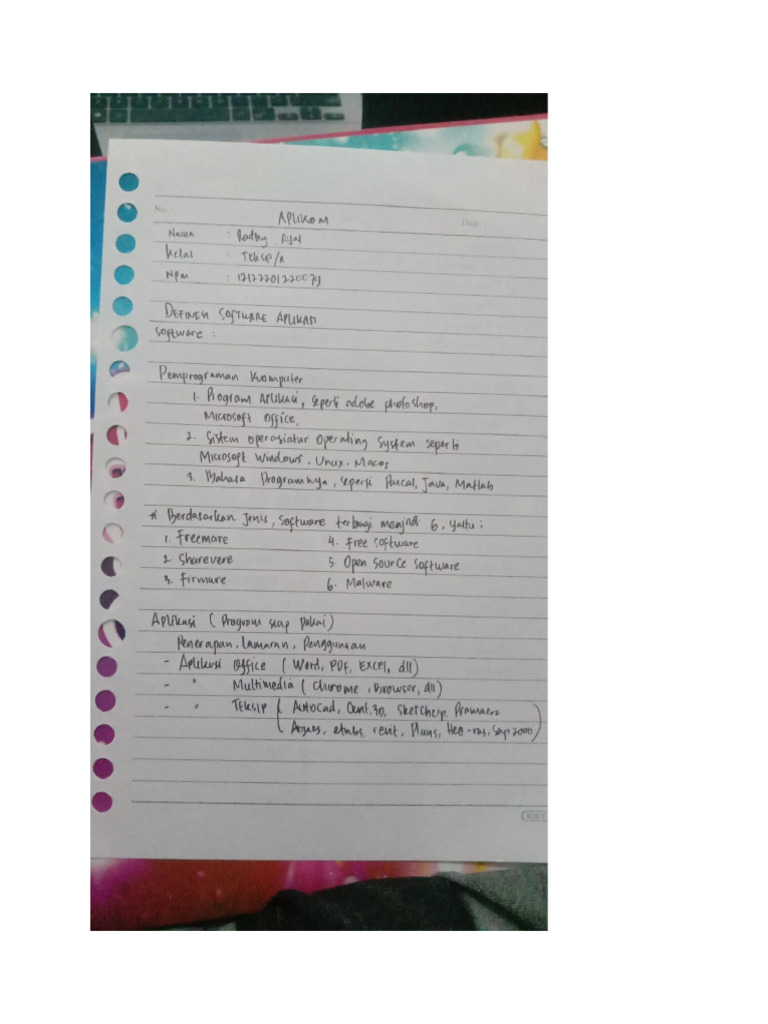 No.:
Date :
APLIKOM
Nama :
Kelas : TEKSIP/A
NPM :
DEFINISI SOFTWARE APLIKASI
Software :
Pemprograman Komputer
1. Program Aplikasi, seperti adobe photoshop,
Microsoft Office.
2. Sistem operasiatur Operating System seperti
Microsoft Windows, Unux, Macos
3. Bahasa Programnya, seperti Pascal, Java, Matlab
* Berdasarkan Jenis, Software terbagi menjadi 6, yaitu :
1. Freemare
4. Free Software
2. Sharevere
5. Open Source Software
3. Firmare
6. Malware
Aplikasi ( Program siap Pakai )
Penerapan, Lamaran, Penggunaan
- Aplikasi Office ( Word, PDF, EXCEL, dll )
- " Multimedia ( Chrome, Browser, dll )
- " TEKSIP ( Autocad, SketchUp,
revit, Hec-ras, Sap 2000 )